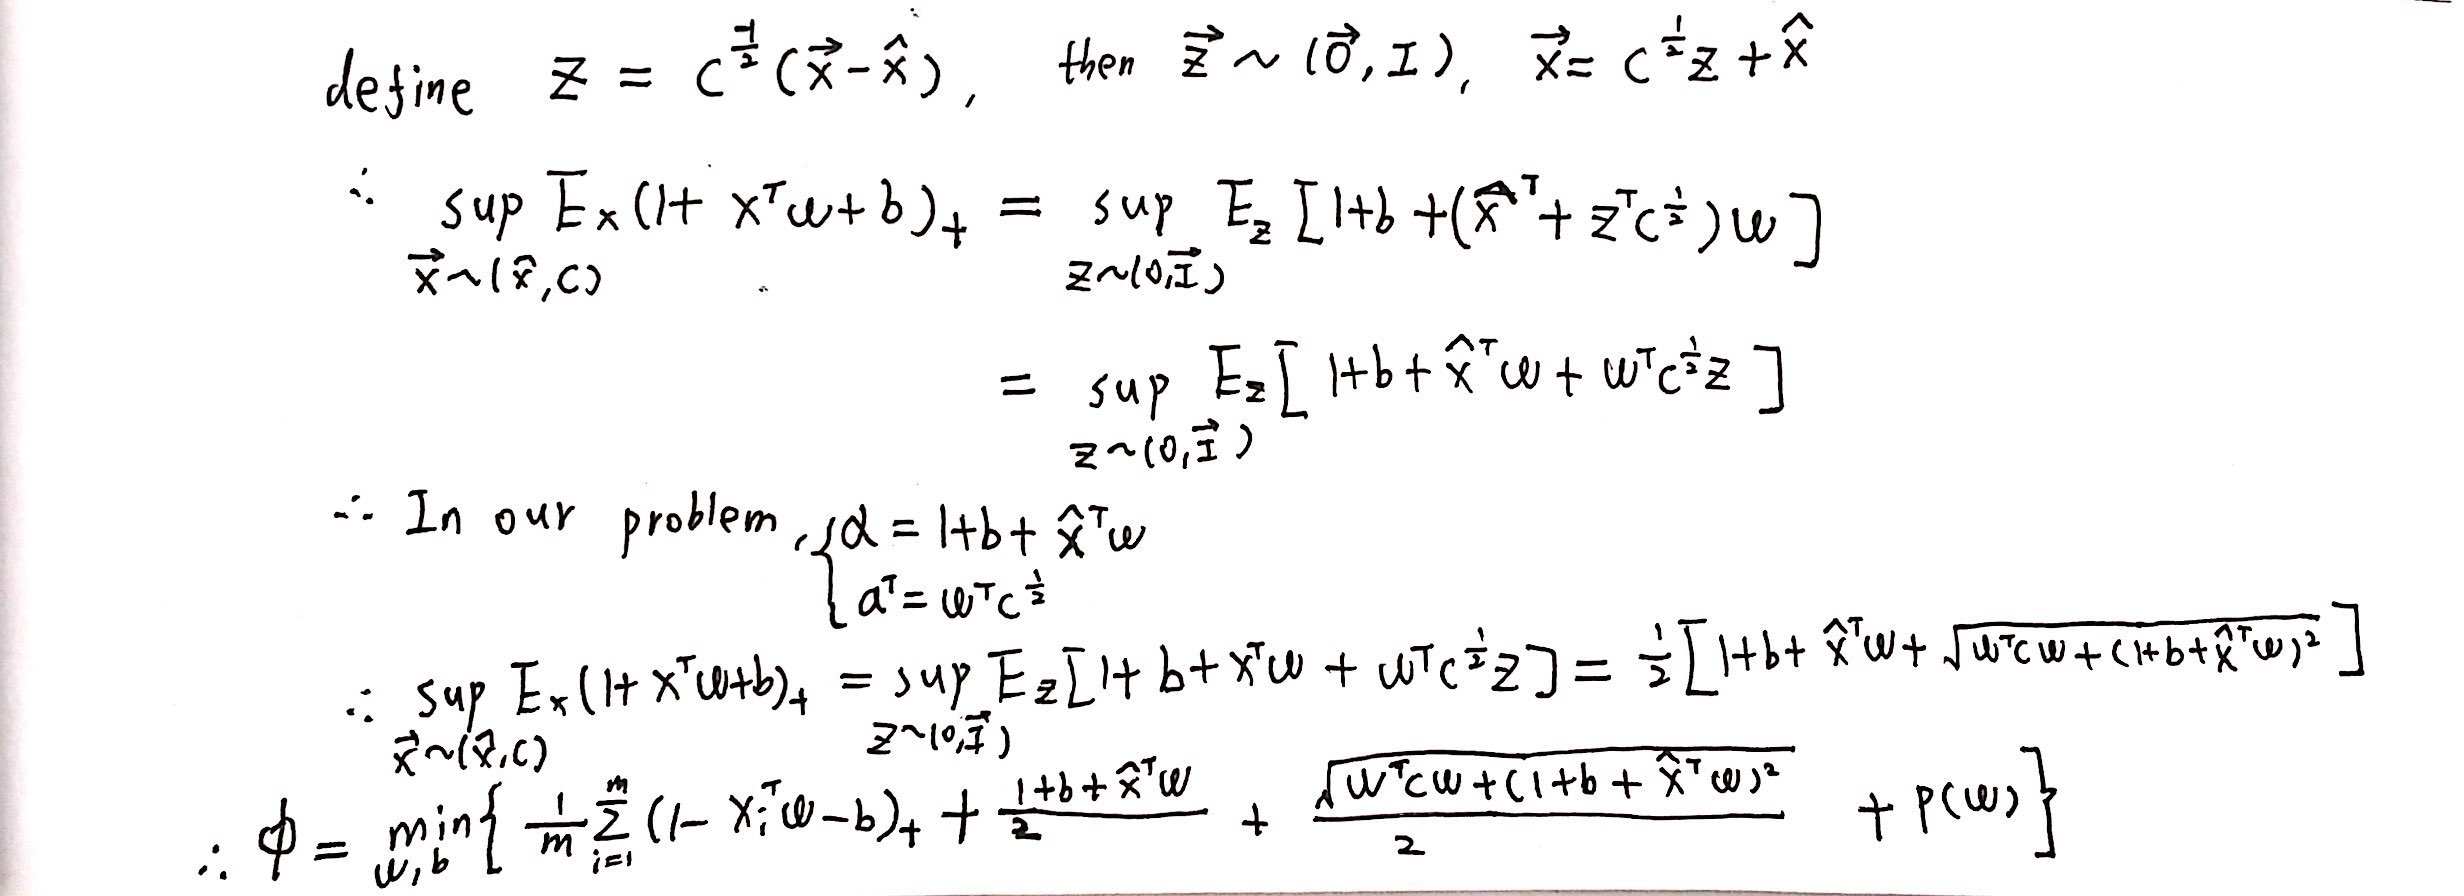 define z = C^{-1/2}(\vec{x} - \hat{x}), then \vec{z} ~ (\vec{0}, I), \vec{x} = C^{1/2}z + \hat{x}
∴ sup_{\vec{x}~(\hat{x},C)} E_x(1+x^Tw+b)_+ = sup_{z~(0,\vec{I})} E_z[1+b+(\hat{x}^T+z^TC^{1/2})w]
= sup_{z~(0,\vec{I})} E_z[1+b+\hat{x}^Tw+w^TC^{1/2}z]
∴ In our problem, { α = 1+b+\hat{x}^Tw
a^T = w^TC^{1/2}
∴ sup_{\vec{x}~(\hat{x},C)} E_x(1+x^Tw+b)_+ = sup_{z~(0,\vec{I})} E_z[1+b+x^Tw+w^TC^{1/2}z] = \frac{1}{2}[1+b+\hat{x}^Tw+\sqrt{w^TCw+(1+b+\hat{x}^Tw)^2}]
∴ ϕ = min_{w,b}{ \frac{1}{m}\sum_{i=1}^{m}(1-x_i^Tw-b)_+ + \frac{1+b+\hat{x}^Tw}{2} + \frac{\sqrt{w^TCw+(1+b+\hat{x}^Tw)^2}}{2} + P(w)}